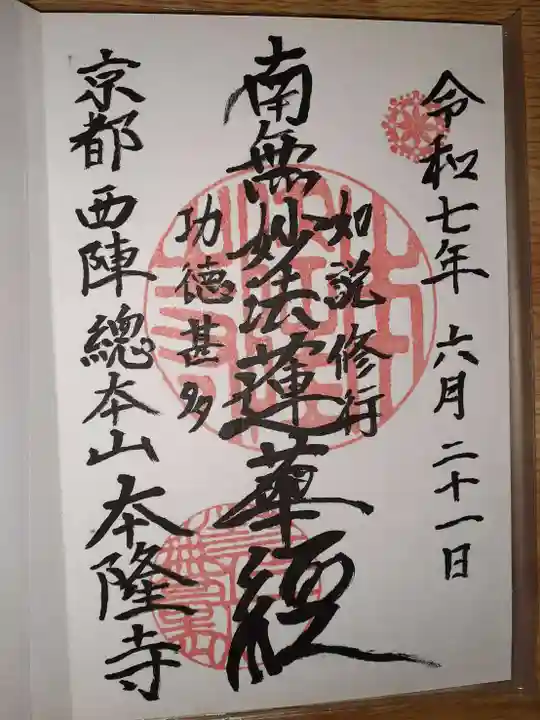 令和七年 六月二十一日
如説修行
南無妙法蓮華経
功徳甚多
京都西陣總本山本隆寺